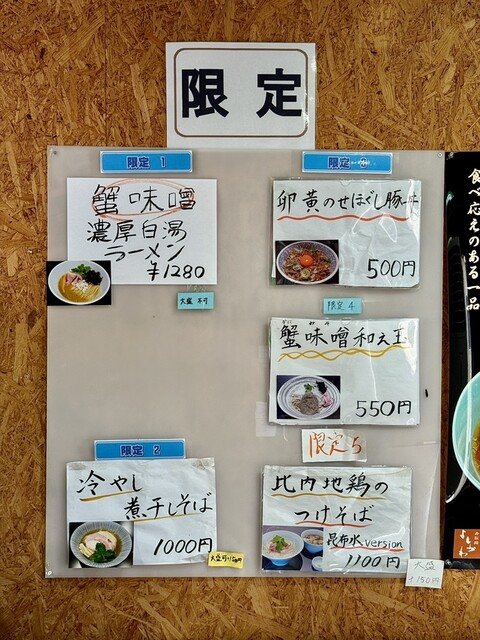 限定
限定 1
蟹味噌
濃厚白湯
ラーメン
¥1280
大盛 不可
限定 2
冷やし
煮干しそば
1000円
大盛可+150円
限定
卵黄のせほぐし豚丼
500円
限定 4
かに みそ
蟹味噌和え玉
550円
限定5
比内地鶏の
つけそば
昆布水 version
1100円
大盛
+150円
食べ応えのある一品